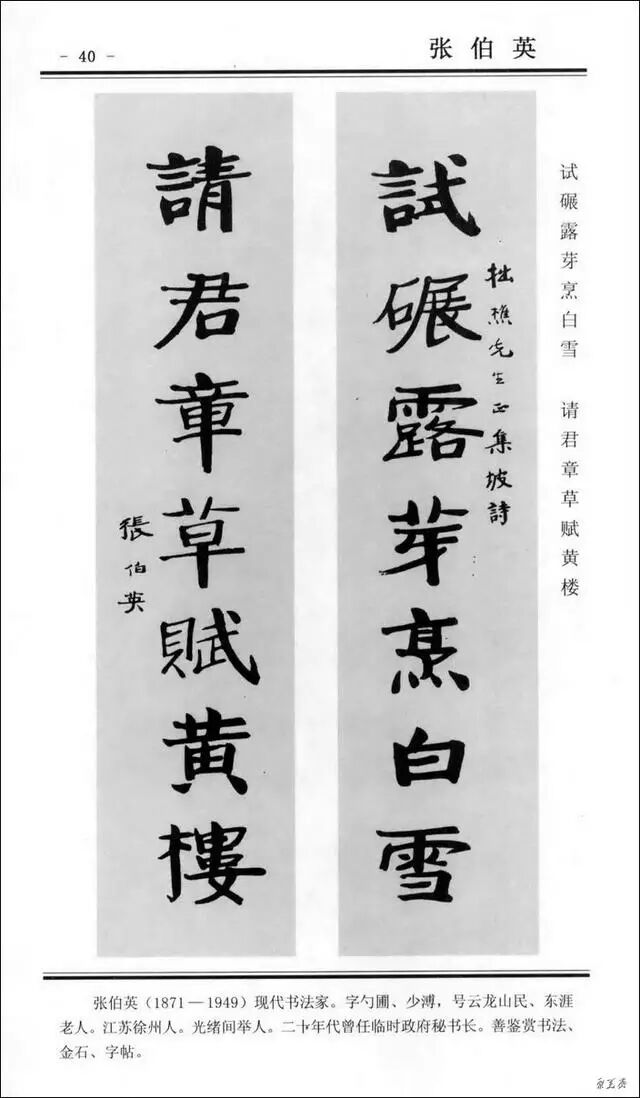 - 40 -
张伯英
試碾露芽烹白雪
拙樵先生正集坡詩
請君章草賦黃樓
張伯英
试碾露芽烹白雪 请君章草赋黄楼
张伯英(1871—1949)现代书法家。字勺圃、少溥,号云龙山民、东涯
老人。江苏徐州人。光绪间举人。二十年代曾任临时政府秘书长。善鉴赏书法、
金石、字帖。